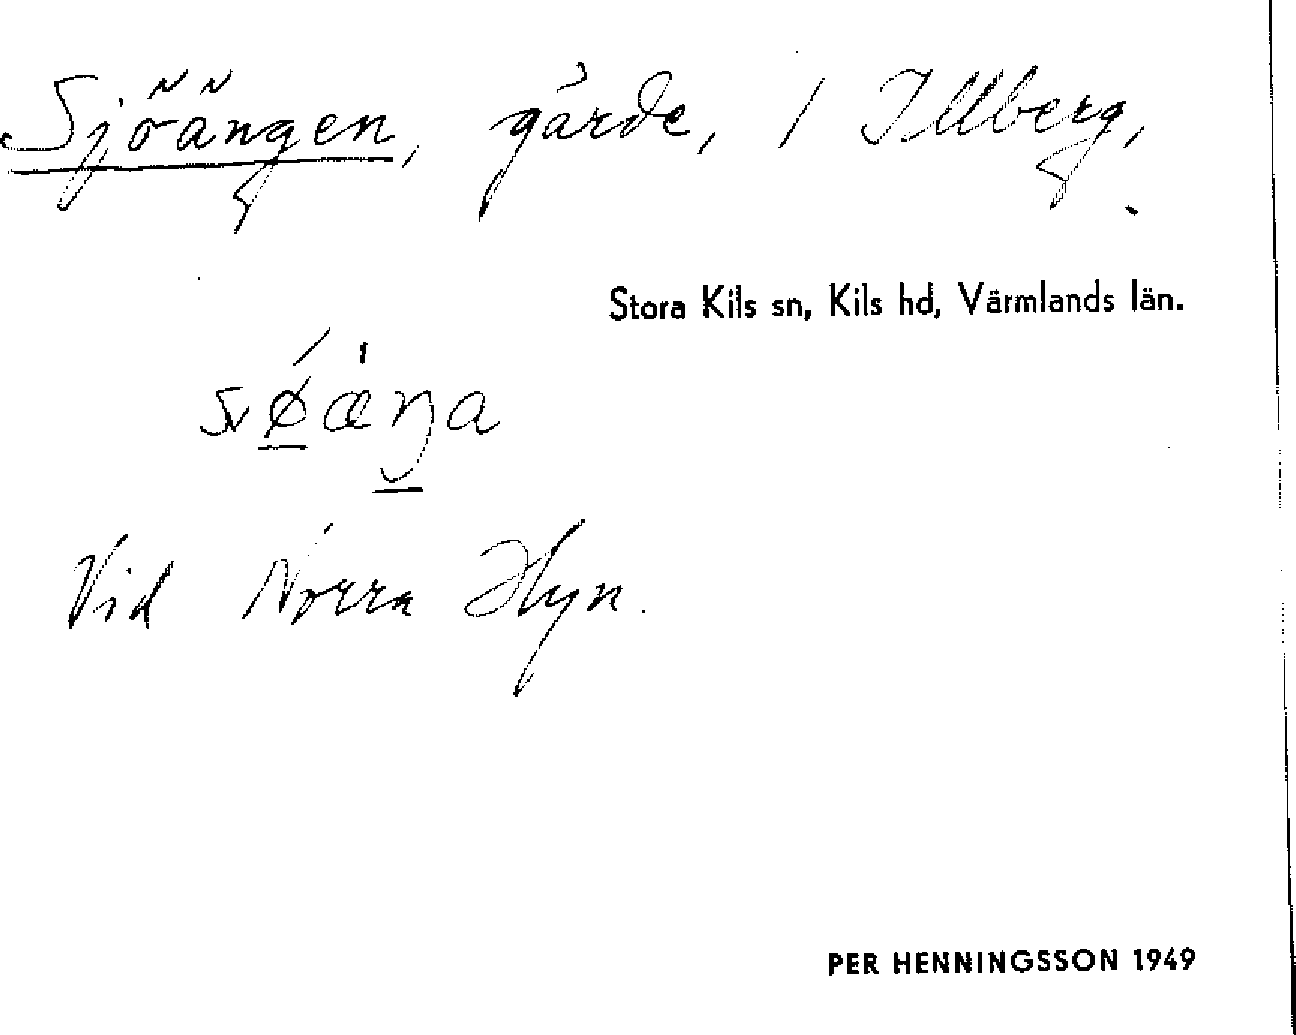 Sjöängen, gärde, / Illberg,
Stora Kils sn, Kils hd, Värmlands län.
Vid Norra Hyn.
PER HENNINGSSON 1949